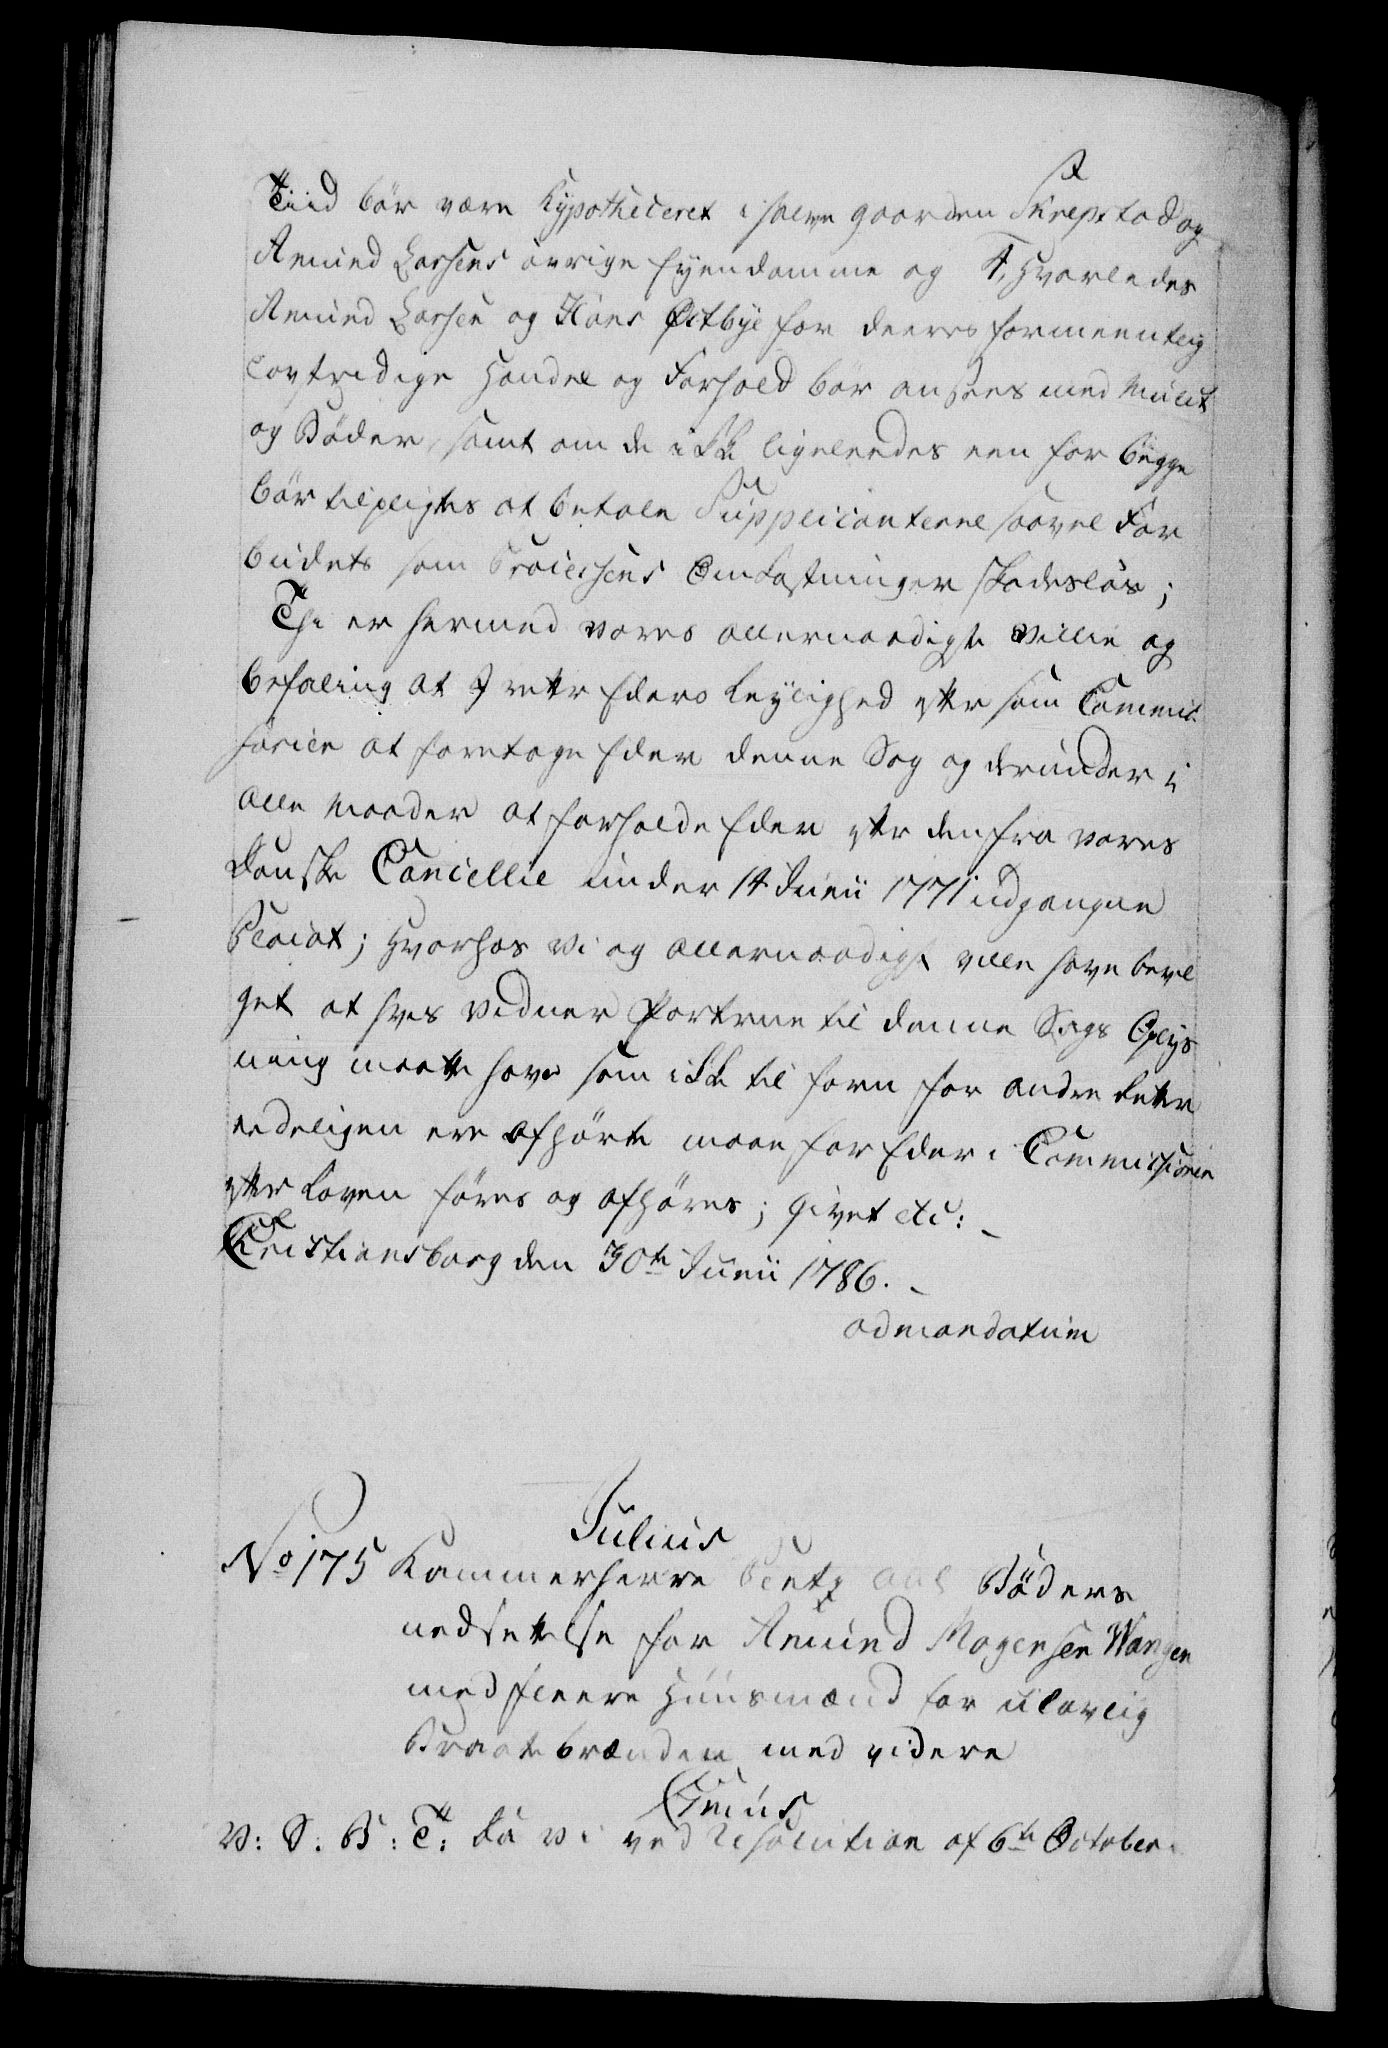 Tiid bør være Hypotheceret i halve gaarden Skrepstad og
Amund Larsens øvrige Eyendomme og 4, Hvorledes
Amund Larsen og Hans Østbye for deeres formeentlig
lovstridige Handel og Forhold bør ansees med Mulct
og Bøder, samt om de ikke ligeleedes een for begge
bør tilpligtes at betale Supplicanterne saavel For
budets som Processens Omkostninger skadesløs;
Thi er hermed vores allernaadigste Villie og
befaling at I rette Eders Leylighed efter som Commis
sarier at foretage Eder denne Sag og derunder i
alle Maader at forholde Eder efter den fra vores
Danske Cancellie under 14 Junii 1771 udgangne
Placat; Hvorhos Vi og allernaadigst ville have bevil
get at hvis Vidner Parterne til denne Sags Oplys
ning maatte have som ikke til forn for andre Retter
eedeligen ere afhørte maae for Eder i Commissionen
efter Loven føres og afhøres; Givet etc:
Christiansborg den 30te Junii 1786.
ad mandatum
Julius
No 175 Kammerherre Bentz anl Bøders
nedsettelse for Amund Mogensen Wangen
med fleere Huusmænd for ulovlig
Braatebrænden med videre
V: S: B: T: Da Vi ved Resolution af 6te October